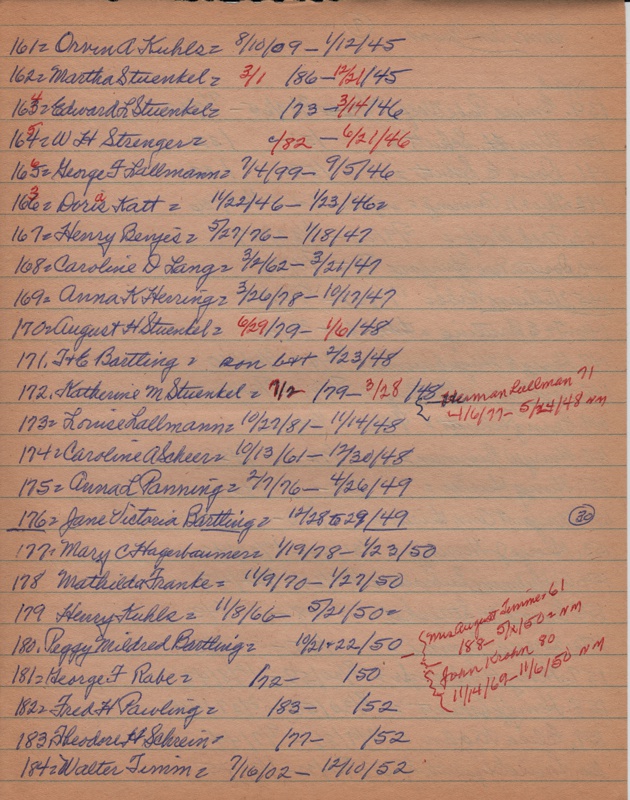 161= Orvin A Kuhls= 8/10/09 - 1/12/45
162= Martha Stuenkel= 3/1 /86 - 12/21/45
164= Edward L Stuenkel= /73 - 3/14/46
165= W H Strenger= /82 - 6/21/46
166= George F Lallmann= 7/4/99 - 9/5/46
163= Doris Katt= 11/22/46 - 1/23/46=
167= Henry Benjes= 5/27/76 - 1/18/47
168= Caroline D Lang= 3/2/62 - 3/21/47
169= Anna K Herring= 3/26/78 - 10/17/47
170= August H Stuenkel= 6/29/79 - 1/6/48
171. F+E Bartling= son b++ 2/23/48
172. Katherine M Stuenkel= 7/2 /79 - 3/28 /48 { Herman Lallman 71
4/6/77 - 5/24/48 NM
173= Louise Lallmann= 10/27/81 - 11/14/48
174= Caroline A Scheer= 10/13/61 - 12/30/48
175= Anna L Panning= 2/7/76 - 4/26/49
176= Jane Victoria Bartling= 12/28 to 29/49 30
177= Mary C Hagerbaumer= 1/19/78 - 1/23/50
178 Mathilda Franke= 11/9/70 - 1/27/50
179 Henry Kuhls= 11/8/66 - 5/21/50=
180. Peggy Mildred Bartling= 10/21+22/50 - { Mrs August Timme= 61
188- 5/ /50= NM
181= George F Rabe= /72- /50 { John Krehn 80
11/14/69 - 11/6/50 NM
182= Fred H Pawling= /83- /52
183 Theodore H Schrein= /77- /52
184= Walter Timm= 7/16/02 - 12/10/52